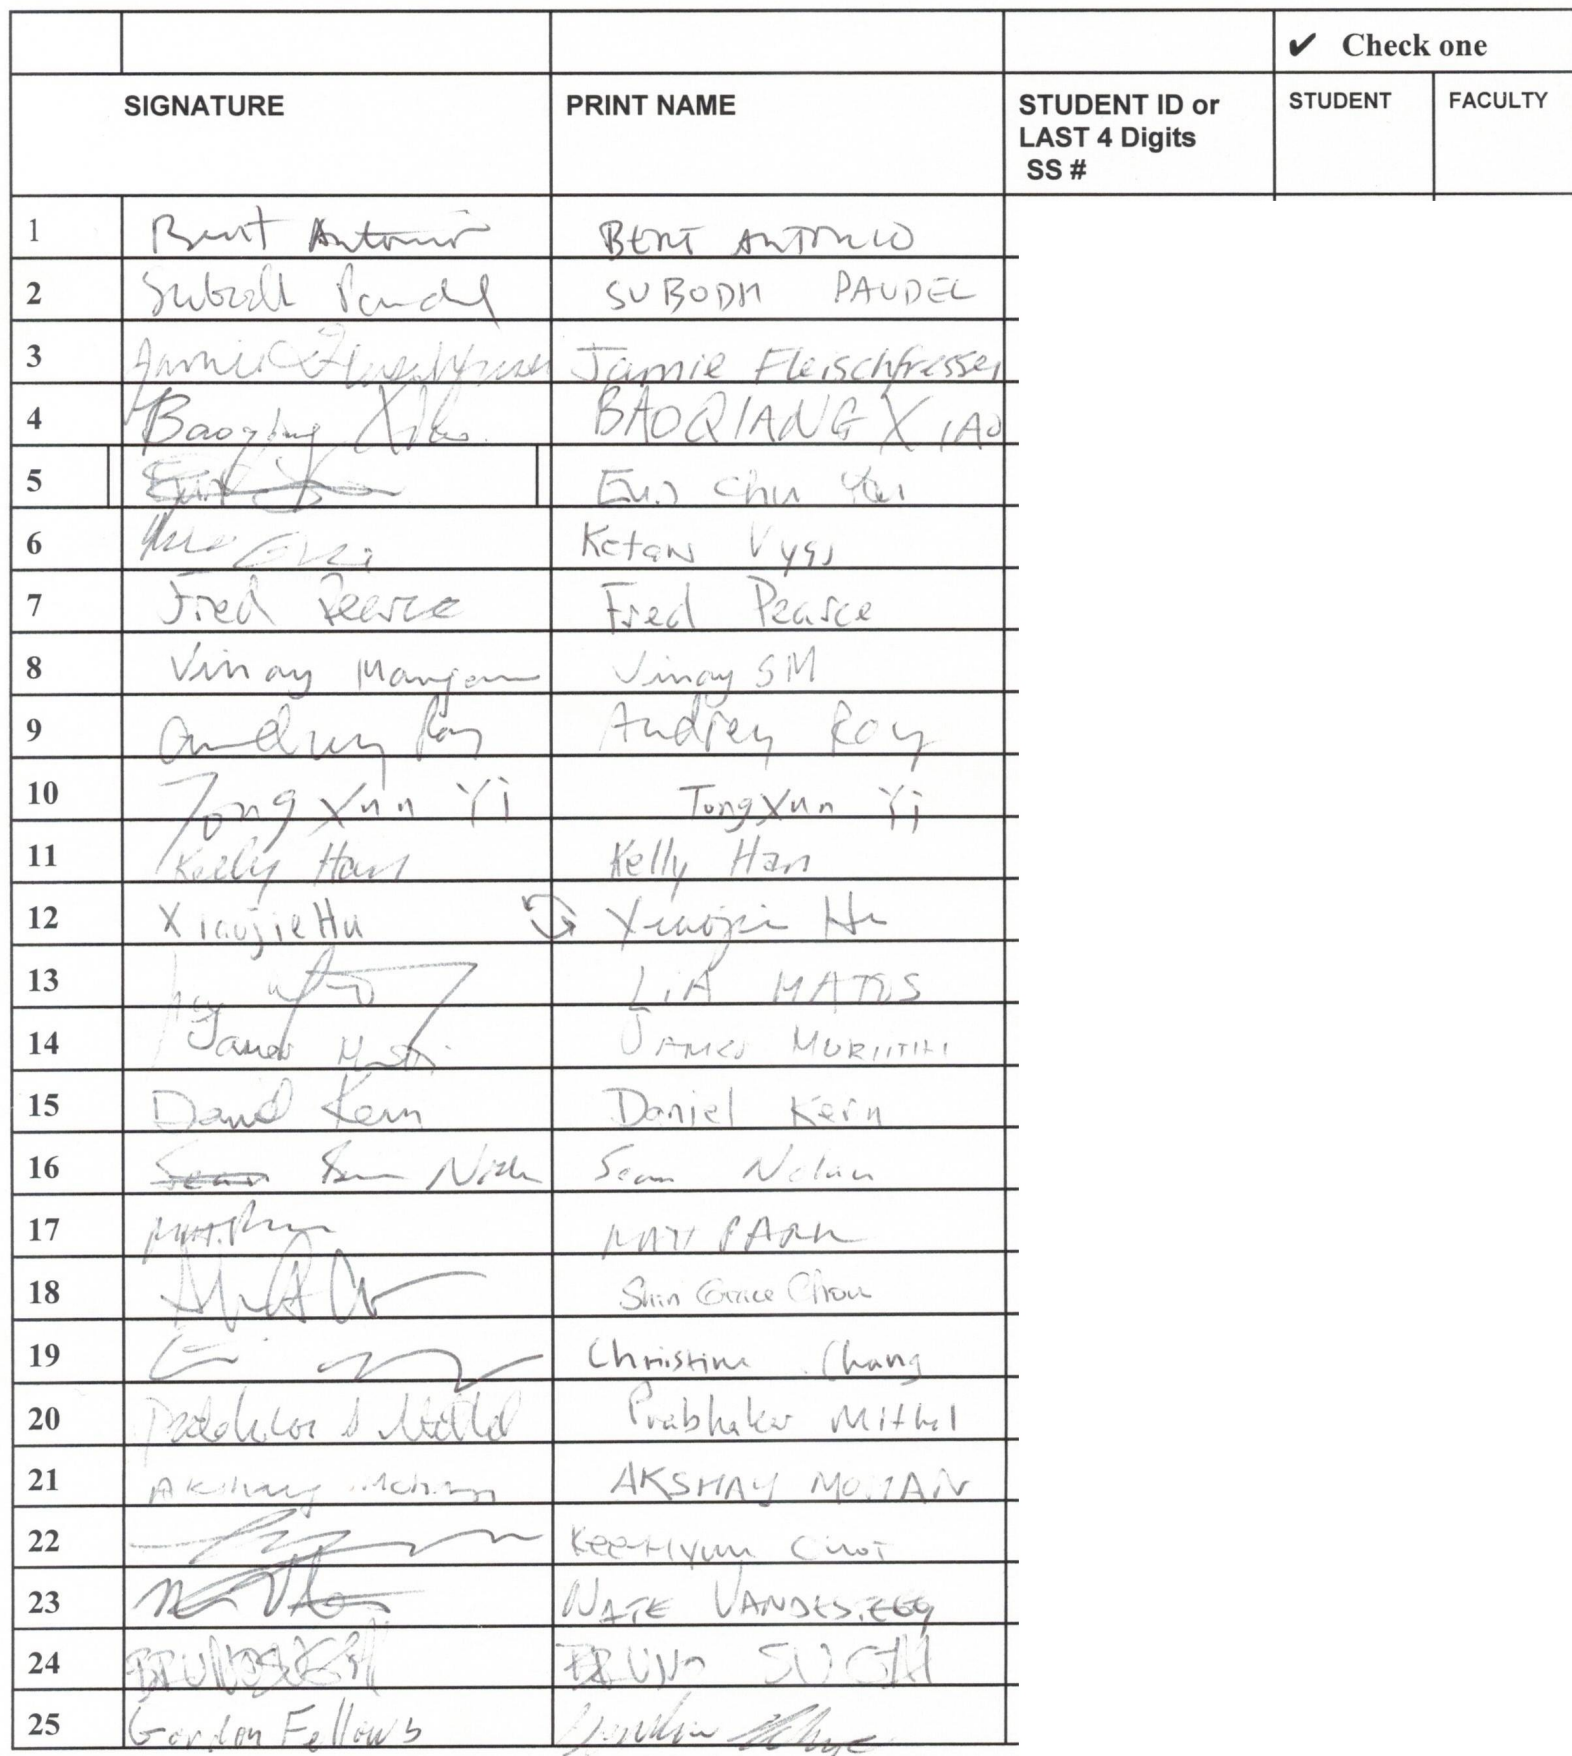 ✔ Check one
SIGNATURE PRINT NAME STUDENT ID or LAST 4 Digits SS # STUDENT FACULTY
1 Bert Antonio BERT ANTONIO
2 Subodh Paudel SUBODH PAUDEL
3 Jamie Fleischfresser Jamie Fleischfresser
4 Baoqiang Xiao BAOQIANG XIAO
5 Eun Chu You
6 Ketan Vyas
7 Fred Pearce Fred Pearce
8 Vinay Mangam Vinay SM
9 Audrey Roy Audrey Roy
10 Tong Xun Yi TongXun Yi
11 Kelly Han Kelly Han
12 Xiaojie Hu Xiaojie Hu
13 LIA MATOS
14 James JAMES MURIITHI
15 Daniel Kern Daniel Kern
16 Sean Sean Nolan Sean Nolan
17 Matt Park MATT PARK
18 Shin Grace Chou
19 Christine Chang
20 Prabhakar Mithal
21 Akshay Mohan AKSHAY MOHAN
22 KeeHyun Choi
23 NATE
24 BRUNO BRUNO
25 Gordon Fellows